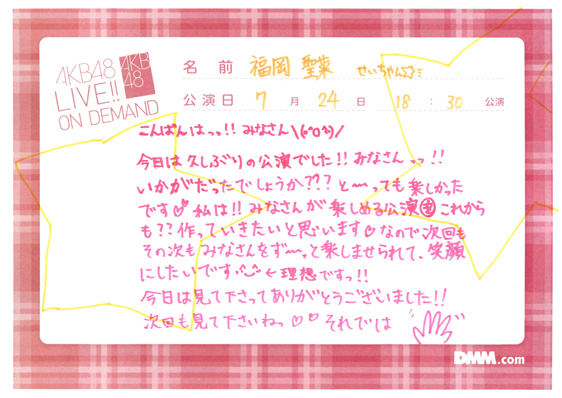 AKB48
LIVE!!
ON DEMAND
AKB
48
名前 福岡 聖菜 せいちゃん
公演日 7月24日 18:30 公演
こんばんはっっ!! みなさん \(^o^)/
今日は久しぶりの公演でした!! みなさんっっ!!
いかがだったでしょうか??? と〜っても楽しかった
です♡ 私は!! みなさんが楽しめる公演をこれから
も?? 作っていきたいと思います♡なので次回も
その次もみなさんをず〜っと楽しませられて、笑顔
にしたいです ←理想ですっ!!
今日は見て下さってありがとうございました!!
次回も見て下さいねっ♡♡ それでは
DMM.com